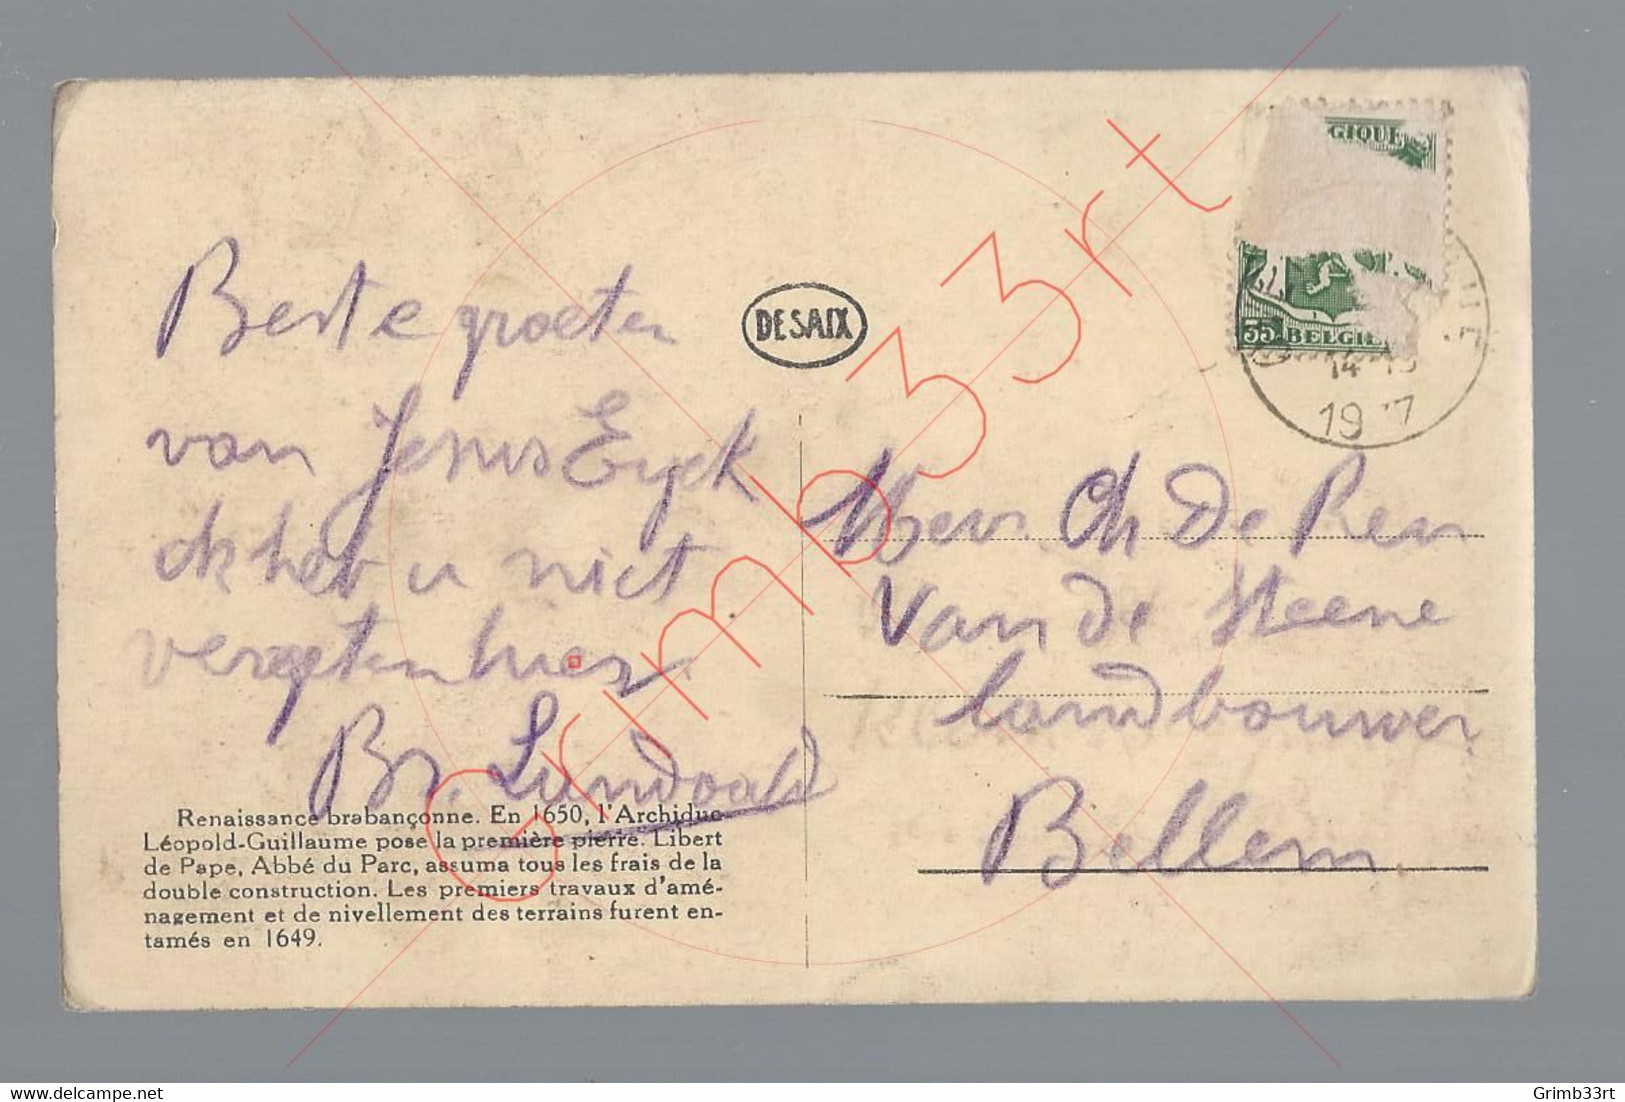 Beste groeten
van Jesus Eyck
ik heb u niet
vergeten hier
Br.
DESAIX
GIQUE
35 BELGIE
14
19 7
Ch De
Van de Steene
landbouwer
Bellem
Renaissance brabançonne. En 1650, l'Archiduc
Léopold-Guillaume pose la première pierre. Libert
de Pape, Abbé du Parc, assuma tous les frais de la
double construction. Les premiers travaux d'amé-
nagement et de nivellement des terrains furent en-
tamés en 1649.
Grimb33rt
delcampe.net
Grimb33rt